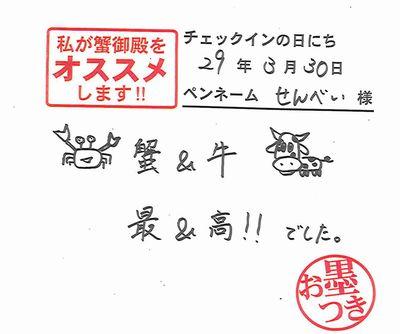 私が蟹御殿を
オススメ
します!!
チェックインの日にち
29年3月30日
ペンネーム せんべい 様
蟹&牛
最&高!! でした。
お墨つき